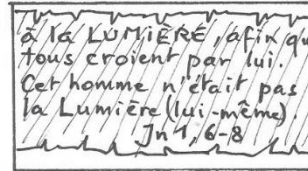 à la LUMIÈRE, afin qu
tous croient par lui.
Cet homme n'était pas
la Lumière (lui-même).
Jn 1, 6-8